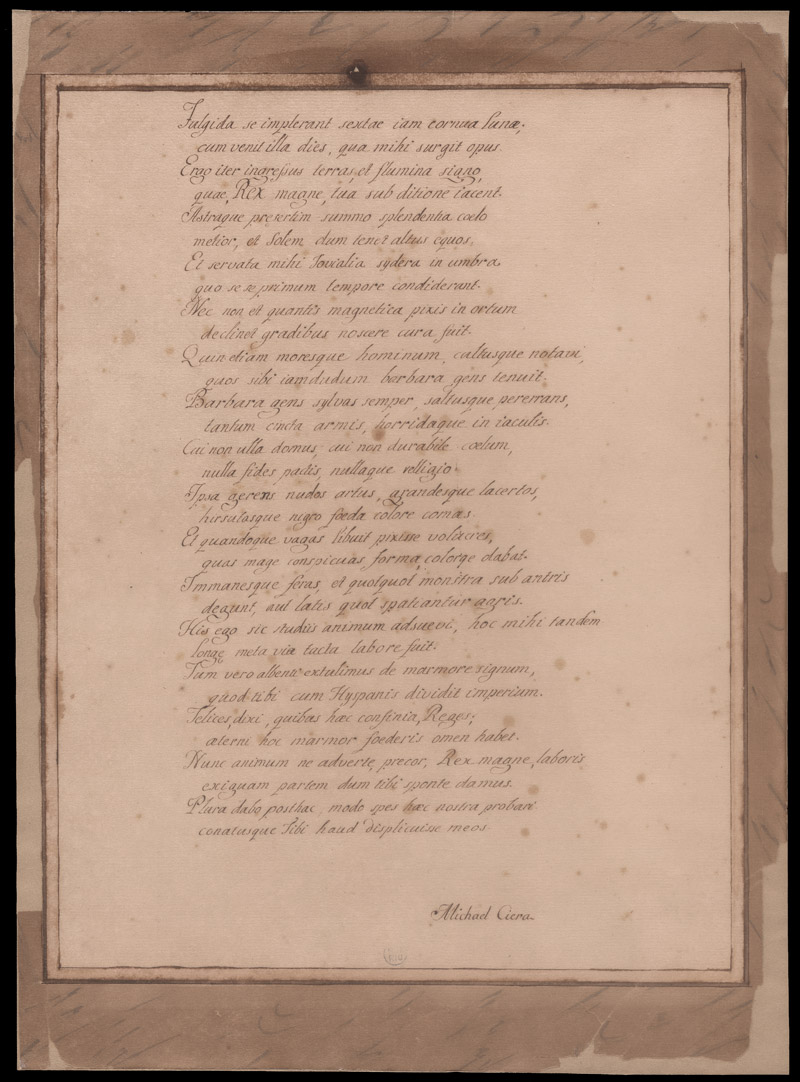 Fulgida se implerant sextae iam cornua Lunæ,
cum venit illa dies, qua mihi surgit opus.
Ergo iter ingressus terras, et flumina signo,
quae, Rex magne, tua sub ditione iacent.
Astraque presertim summo splendentia coelo
metior, et Solem dum tenet altus equos,
Et servata mihi Iovialia sydera in umbra,
quo se se primum tempore condiderant.
Nec non et quantis magnetica pixis in ortum
declinet gradibus noscere cura fuit.
Quin etiam moresque hominum, cultusque notavi,
quos sibi iamdudum barbara gens tenuit.
Barbara gens sylvas semper, saltusque pererrans,
tantum cincta armis, horridaque in iaculis.
Cui non ulla domus, cui non durabile coelum,
nulla fides pactis, nullaque relligio.
Ipsa gerens nudos artus, grandesque lacertos,
hirsutasque nigro foeda colore comas.
Et quandoque vagas libuit pixisse volucres,
quas mage conspicuas forma, colorqe dabat.
Immanesque feras, et quotquot monstra sub antris
degunt, aut latis quot spatiantur agris.
His ego sic studiis animum adsuevi, hoc mihi tandem
longe meta via tacta labore fuit.
Iam vero albenti extulimus de marmore signum,
quod tibi cum Hyspanis dividit imperium.
Felices, dixi, quibus hæc confinia, Reges;
æterni hoc marmor foederis omen habet.
Nunc animum ne adverte, precor, Rex magne, laboris
exiguam partem dum tibi sponte damus.
Plura dabo posthac modo spes hæc nostra probari
conatusque Tibi haud displicuisse meos.
Michael Ciera